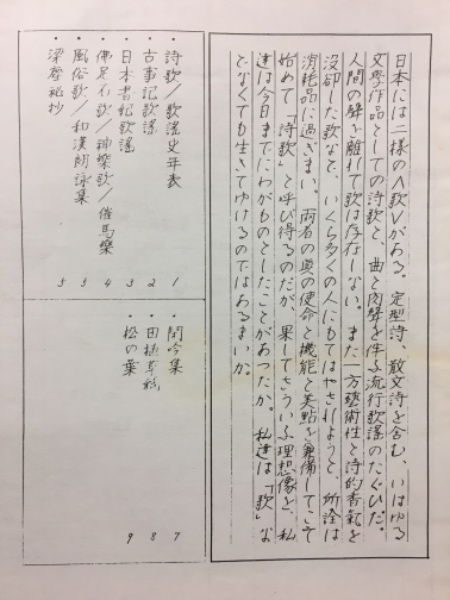 日本には二様の〈歌〉がある。定型詩、散文詩を含む、いはゆる
文學作品としての詩歌と、曲と肉聲を伴ふ流行歌謡のたぐひだ。
人間の聲を離れて歌は存在しない。また一方藝術性と詩的香氣を
没却した歌など、いくら多くの人にもてはやされようと、所詮は
消耗品に過ぎまい。両者の眞の使命と機能と美點を兼備してこそ
始めて「詩歌」と呼び得るのだが、果してさういふ理想像を、私
達は今日までにわがものとしたことがあつたか。私達は「歌」な
どなくても生きてゆけるのではあるまいか。
・詩歌/歌謡史年表 1
・古事記歌謡 2
・日本書紀歌謡 3
・佛足石歌/神樂歌/催馬樂 4
・風俗歌/和漢朗詠集 5
・梁塵秘抄 5
・閑吟集 7
・田植草紙 8
・松の葉 9